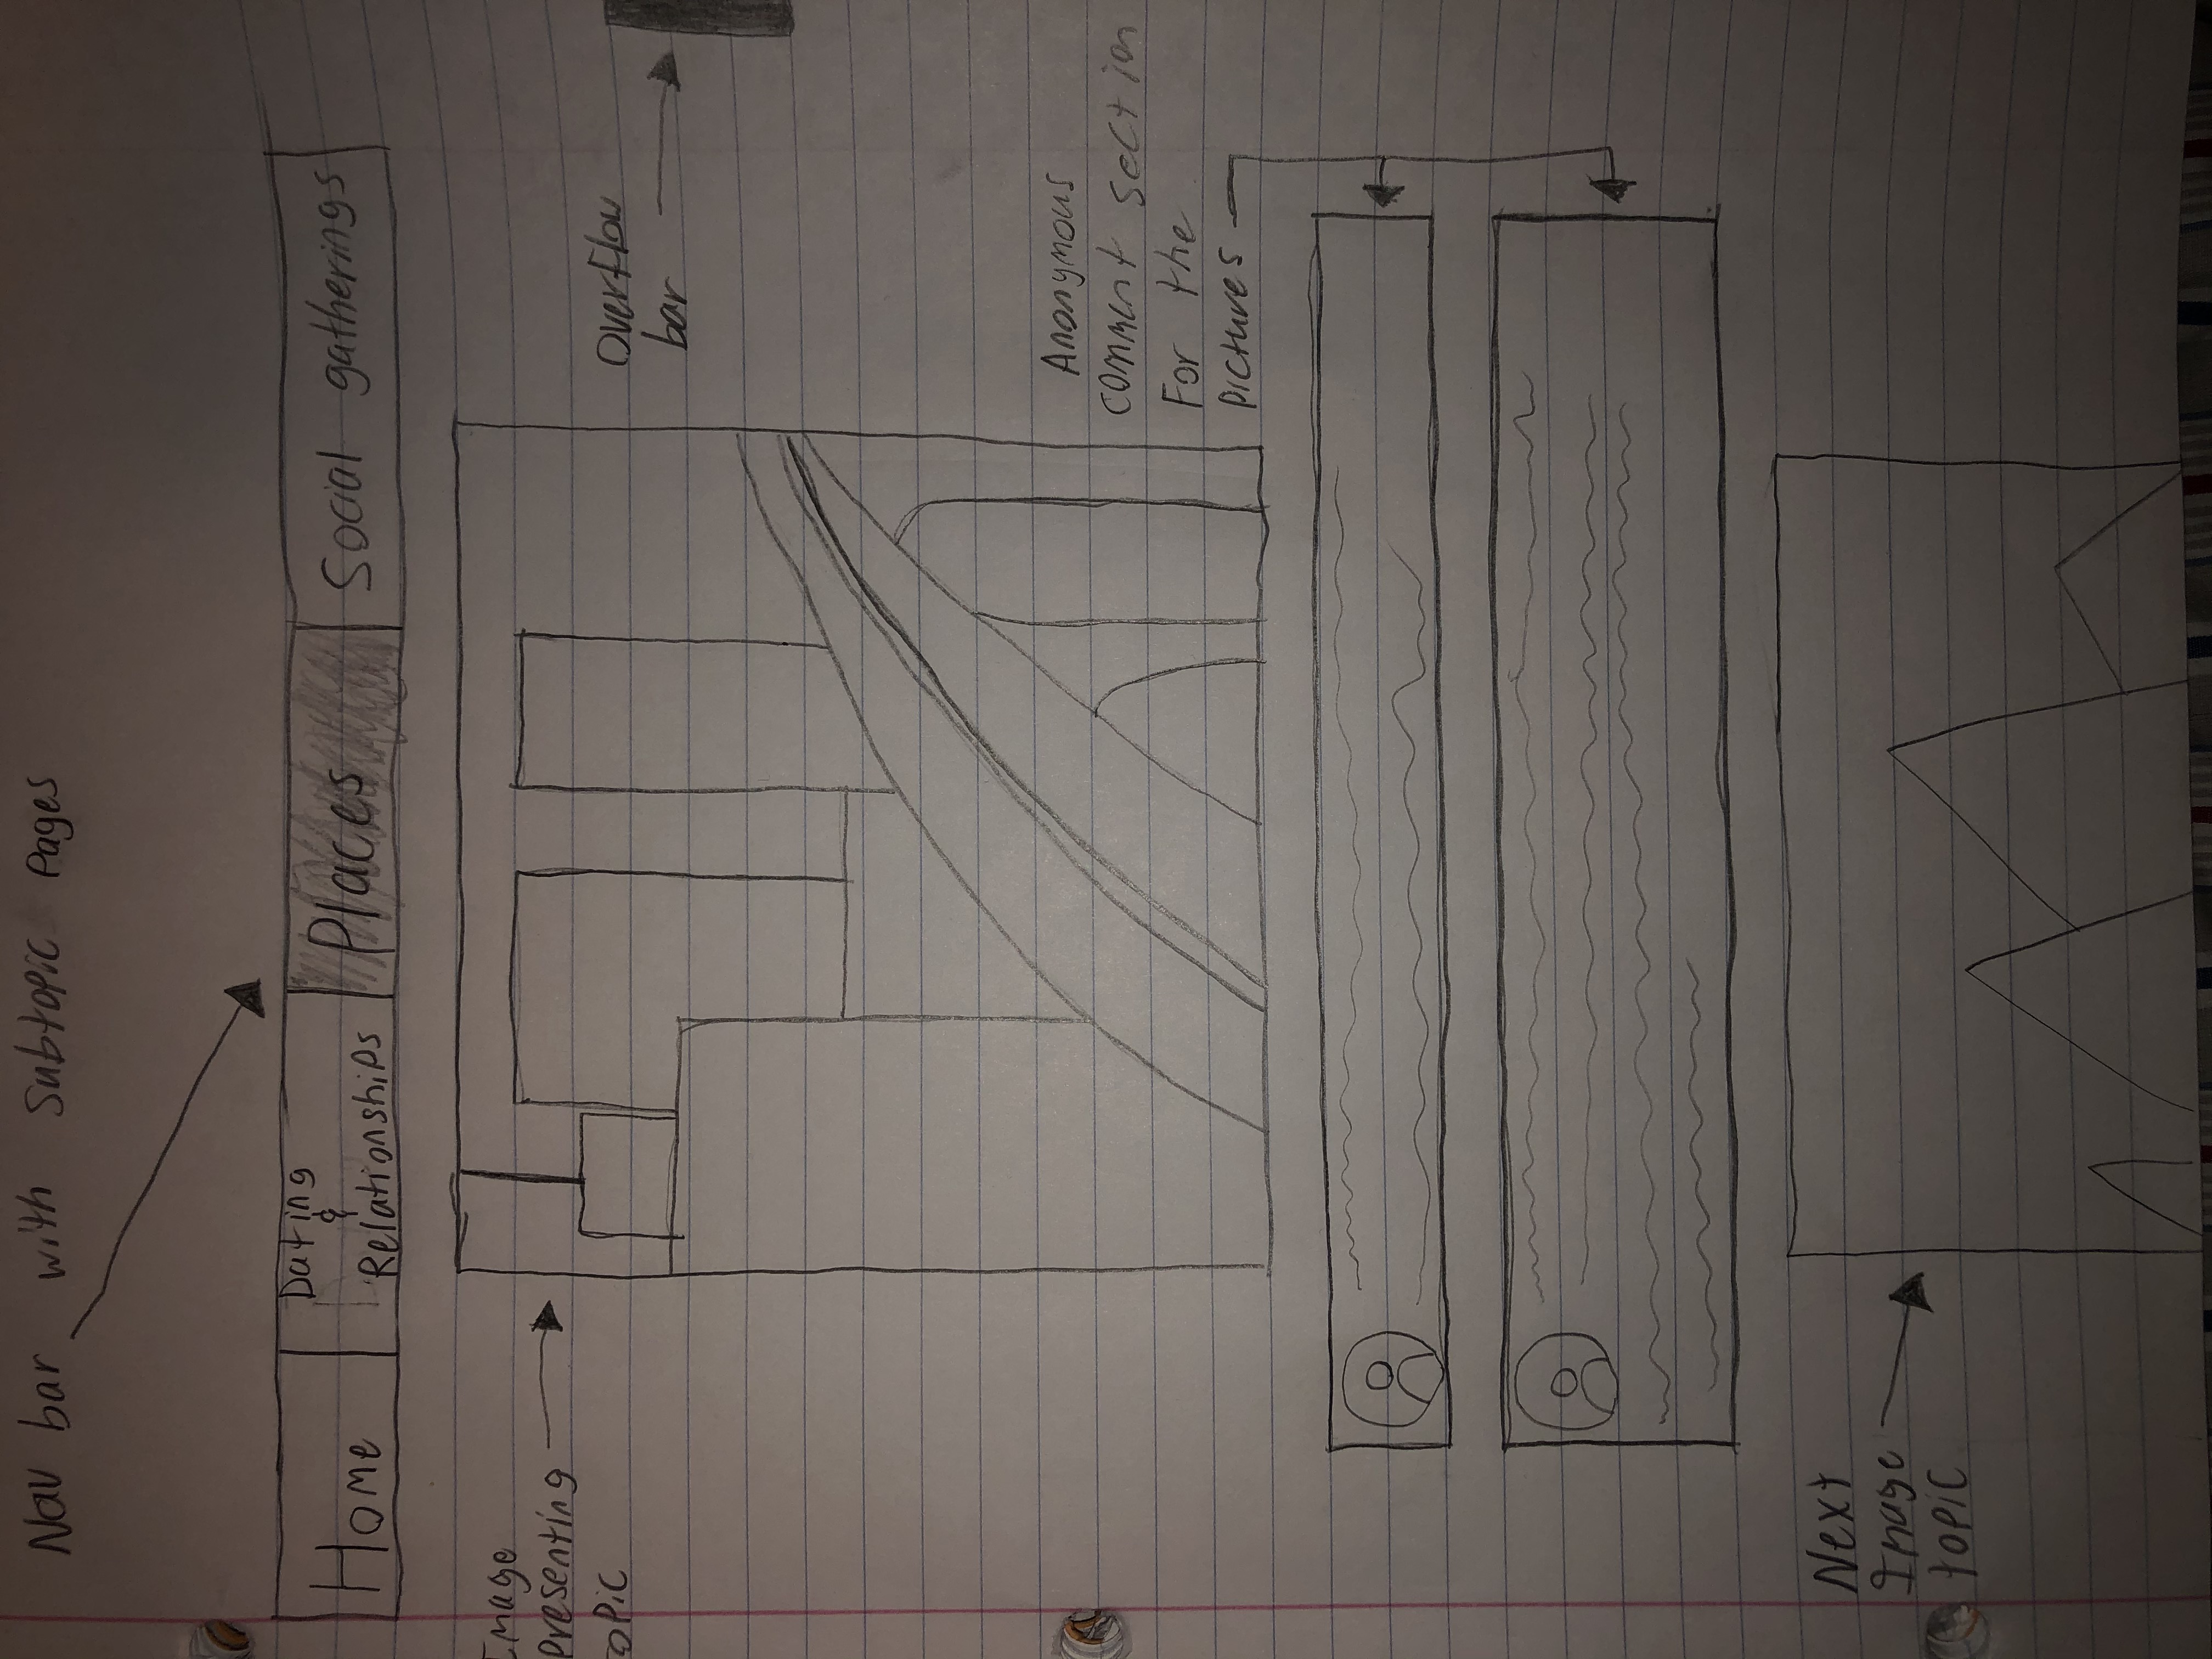 Nav bar with Subtopic Pages
Home
Dating
&
Relationships
Places
Social gatherings
Image
presenting
topic
Overflow
bar
Anonymous
comment section
For the
pictures
Next
Image
topic